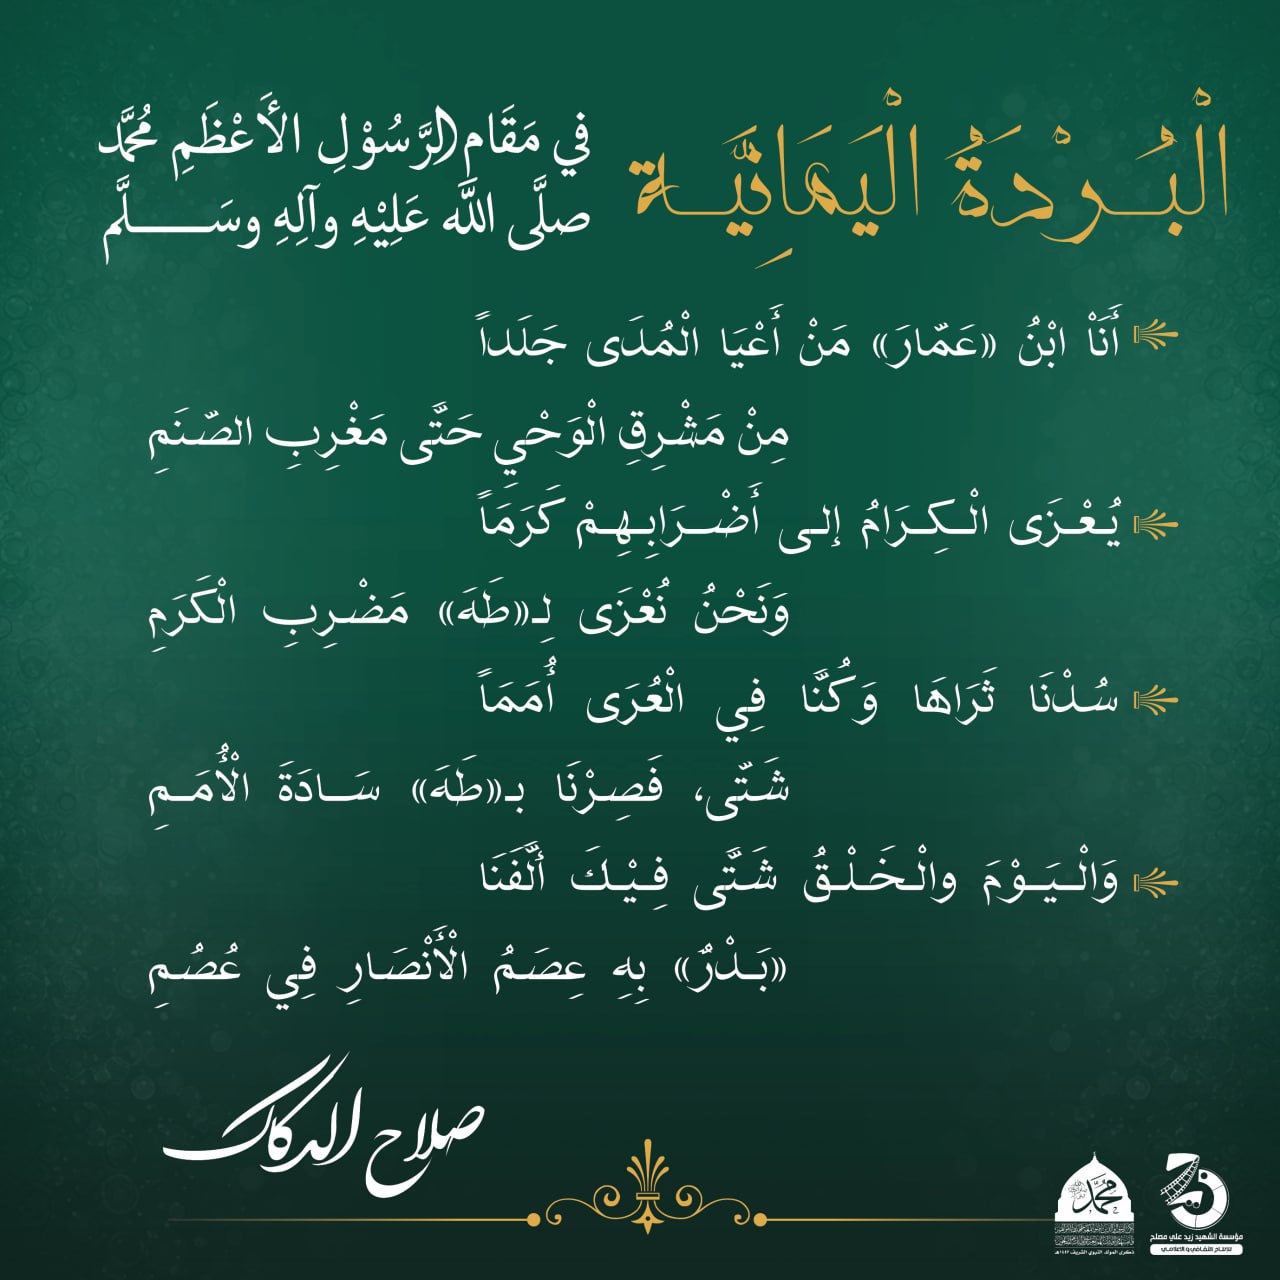 الْبُرْدَةُ الْيَمَانِيَّة
في مَقَام الرَّسُوْلِ الأَعْظَمِ مُحَمَّد
صلَّى اللَّه عَلِيْهِ وآلِهِ وسَلَّم
أَنَاْ ابْنُ «عَمَّارَ» مَنْ أَعْيَا الْمُدَى جَلَداً
مِنْ مَشْرِقِ الْوَحْيِ حَتَّى مَغْرِبِ الصَّنَمِ
يُعْزَى الْكِرَامُ إلى أَضْرَابِهِمْ كَرَمَاً
وَنَحْنُ نُعْزَى لِـ«طَهَ» مَضْرِبِ الْكَرَمِ
سُدْنَا ثَرَاهَا وَكُنَّا فِي الْعُرَى أُمَمَاً
شَتَّى، فَصِرْنَا بـ«طَهَ» سَادَةَ الْأُمَمِ
وَالْيَوْمَ والْخَلْقُ شَتَّى فِيْكَ أَلَّفَنَا
«بَدْرٌ» بِهِ عِصَمُ الْأَنْصَارِ فِي عُصُمِ
صلاح الدكاك
محمد
ذكرى المولد النبوي الشريف ١٤٤٣هـ
مؤسسة الشهيد زيد علي مصلح
للإنتاج الثقافي والإعلامي